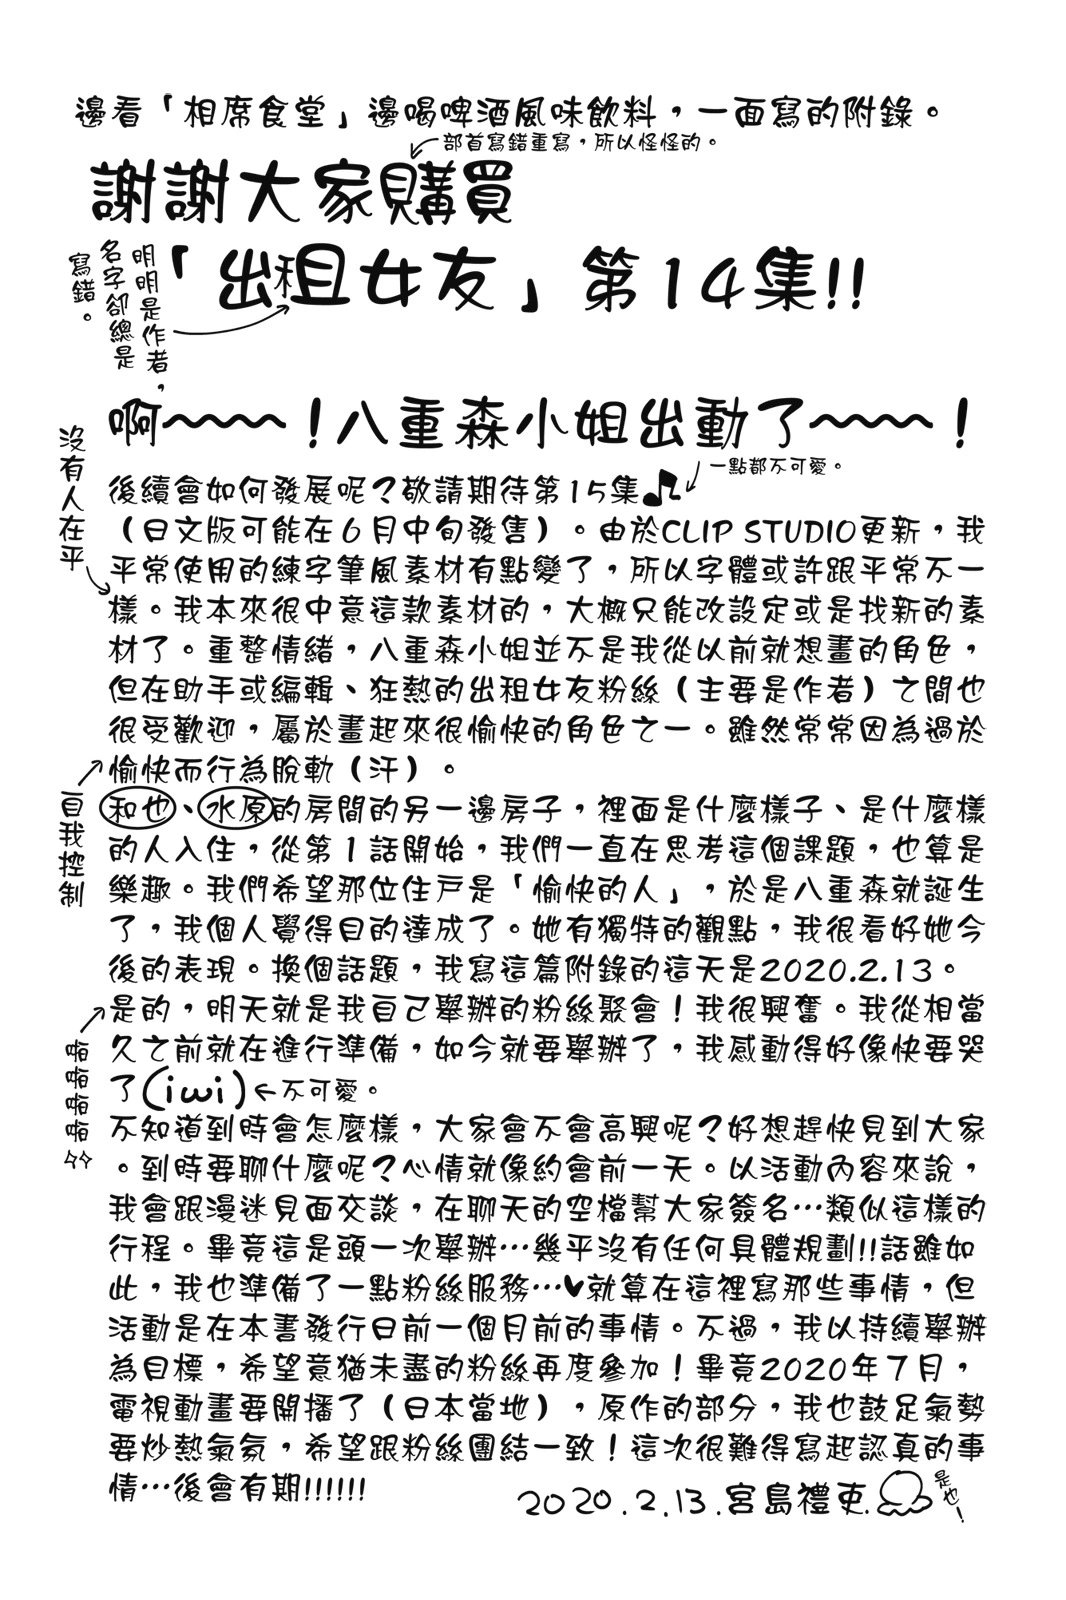 邊看「相席食堂」邊喝啤酒風味飲料，一面寫的附錄。
部首寫錯重寫，所以怪怪的。
謝謝大家購買
「出租女友」第14集!!
明明是作者，
名字卻總是
寫錯。
啊～～～～！八重森小姐出動了～～～！
一點都不可愛。
沒有人在乎
後續會如何發展呢？敬請期待第15集♪
（日文版可能在6月中旬發售）。由於CLIP STUDIO更新，我
平常使用的練字筆風素材有點變了，所以字體或許跟平常不一
樣。我本來很中意這款素材的，大概只能改設定或是找新的素
材了。重整情緒，八重森小姐並不是我從以前就想畫的角色，
但在助手或編輯、狂熱的出租女友粉絲（主要是作者）之間也
很受歡迎，屬於畫起來很愉快的角色之一。雖然常常因為過於
愉快而行為脫軌（汗）。
自我控制
和也、水原的房間的另一邊房子，裡面是什麼樣子、是什麼樣
的人入住，從第1話開始，我們一直在思考這個課題，也算是
樂趣。我們希望那位住戶是「愉快的人」，於是八重森就誕生
了，我個人覺得目的達成了。她有獨特的觀點，我很看好她今
後的表現。換個話題，我寫這篇附錄的這天是2020.2.13。
是的，明天就是我自己舉辦的粉絲聚會！我很興奮。我從相當
久之前就在進行準備，如今就要舉辦了，我感動得好像快要哭
了(iωi)←不可愛。
啪啪啪啪✧✧
不知道到時會怎麼樣，大家會不會高興呢？好想趕快見到大家
。到時要聊什麼呢？心情就像約會前一天。以活動內容來說，
我會跟漫迷見面交談，在聊天的空檔幫大家簽名…類似這樣的
行程。畢竟這是頭一次舉辦…幾乎沒有任何具體規劃!!話雖如
此，我也準備了一點粉絲服務…♥就算在這裡寫那些事情，但
活動是在本書發行日前一個月前的事情。不過，我以持續舉辦
為目標，希望意猶未盡的粉絲再度參加！畢竟2020年7月，
電視動畫要開播了（日本當地），原作的部分，我也鼓足氣勢
要炒熱氣氛，希望跟粉絲團結一致！這次很難得寫起認真的事
情…後會有期!!!!!!
2020.2.13.宮島禮吏.
是也！